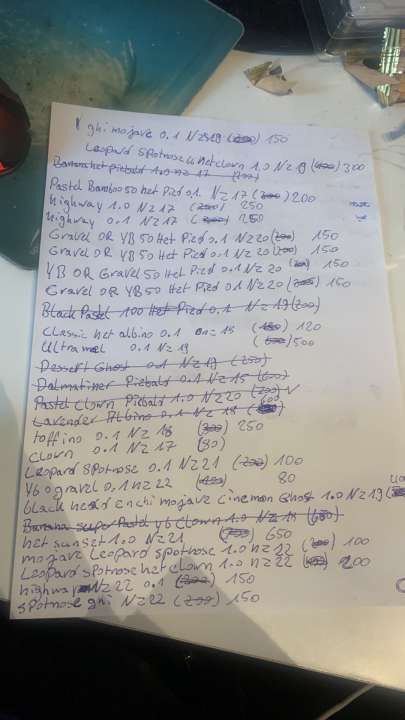 ghi mojave 0.1 NZ19 (200) 150
Leopard Spotnose het clown 1.0 NZ19 (400) 300
Banana het piebald 1.0 NZ 17 (200)
Pastel Bamboo 50 het Pied 0.1 NZ 17 (200) 200
highway 1.0 NZ17 250
highway 0.1 NZ17 250
Gravel OR YB 50 Het Pied 0.1 NZ20 (200) 150
Gravel OR YB 50 Het Pied 0.1 NZ20 (200) 150
YB OR Gravel 50 Het Pied 0.1 NZ 20 150
Gravel OR YB50 Het Pied 0.1 NZ20 150
Black Pastel 100 Het Pied 0.1 NZ 19 (200)
Classic het albino 0.1 NZ 19 (180) 120
Ultramel 0.1 NZ 19 500
Dessert Ghost 0.1 NZ 19 (250)
Dalmatiner Piebald 0.1 NZ 15 (600)
Pastel Clown Piebald 1.0 NZ20 (700) V
600
Lavender Albino 0.1 NZ 18
toffino 0.1 NZ 18 (300) 250
Clown 0.1 NZ 17 (80)
Leopard Spotnose 0.1 NZ21 (200) 100
Yb o gravel 0.1 nz 22 (100) 80
black head enchi mojave cinemon Ghost 1.0 NZ19
Banana super Pastel yb Clown 1.0 NZ 19 (600)
het sunset 1.0 NZ21 (700) 650
mojave Leopard spotnose 1.0 nz22 (200) 100
Leopard spotnose het clown 1.0 nz22 200
highway NZ22 0.1 (200) 150
spotnose ghi NZ22 (200) 150